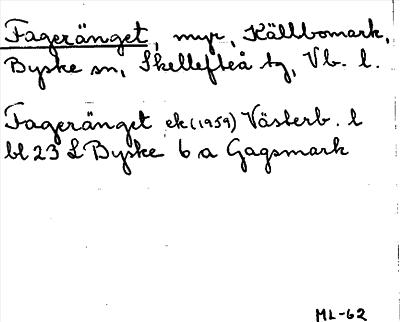 Fageränget, myr, Källbomark,
Byske sn, Skellefteå tg, Vb. l.
Fageränget ek (1959) Västerb. l
bl 23 L Byske 6 a Gagsmark
ML-62